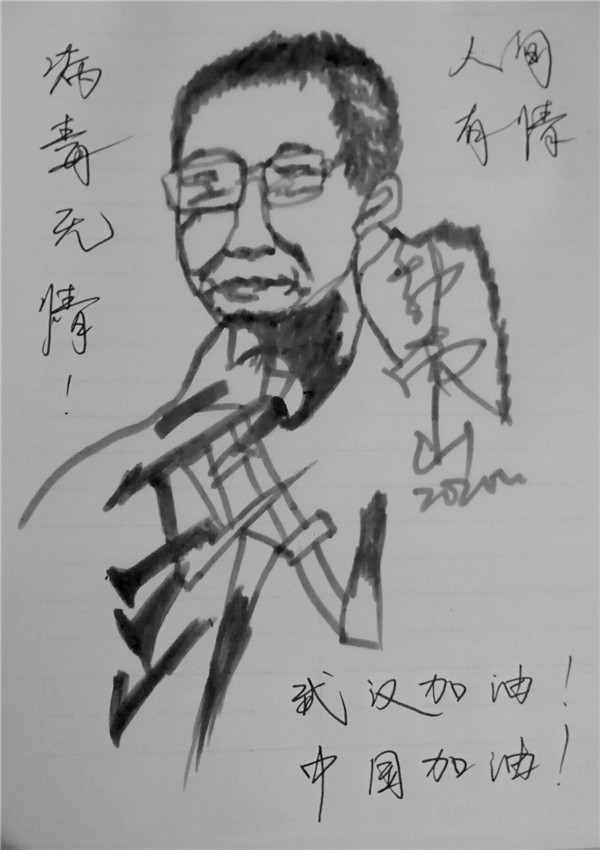 病毒无情！
人间
有情
山
2020
武汉加油！
中国加油！